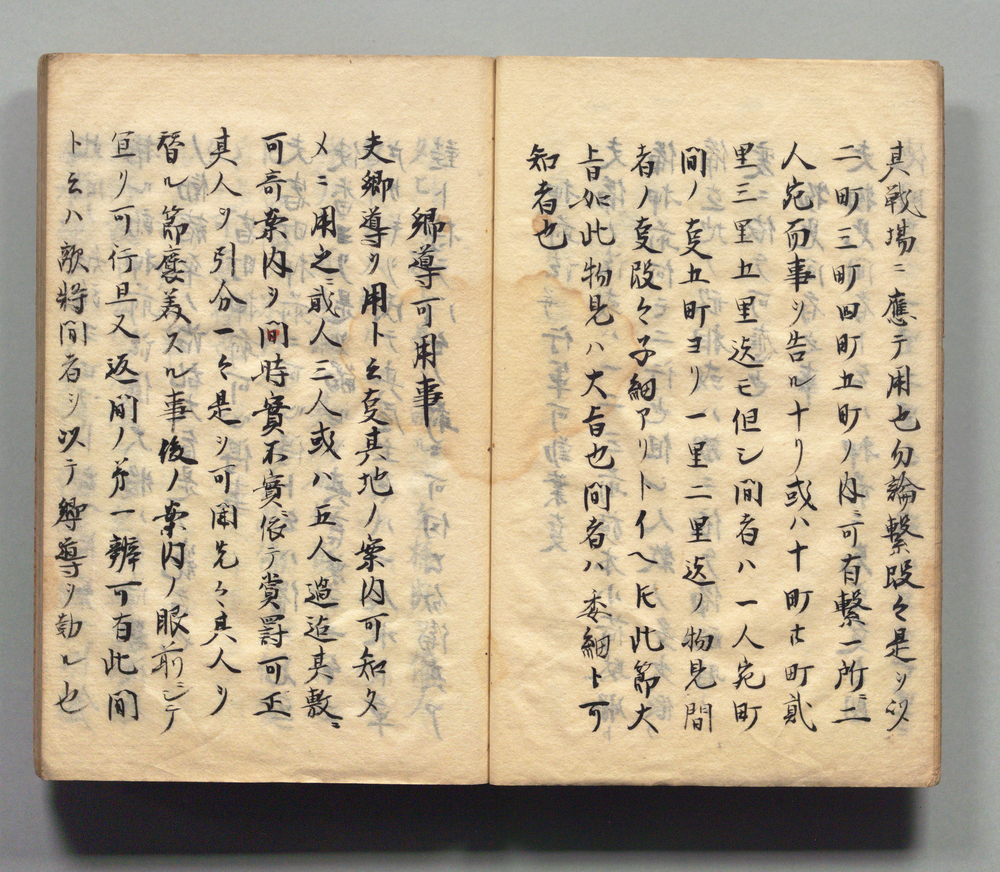 其戦場ニ應テ用也勿論繋段々是ヲ以
二町三町四町五町ノ内ニ可有繋一所ニ二
人宛而事ヲ告ル十リ或ハ十町廿町貳
里三里五里迄モ但シ間者ハ一人宛町
間ノ叓五町ヨリ一里二里迄ノ物見間
者ノ叓段々子細アリトイヘ𪜈此節大
旨如此物見ハ大旨也間者ハ委細ト可
知者也
郷導可用事
夫郷導ヲ用ト云叓其地ノ案内可知タ
メニ用之ニ或人三人或ハ五人過迠其敷ニ
可寄案内ヲ間時實不實依テ賞罰可正
其人ヲ引分一々是ヲ可聞先々其人ヲ
替ル節褒美スル事後ノ案内ノ眼前ニシテ
宜リ可行且又返間ノ弁一辨可有此間
ト云ハ敵将間者ヲ以テ郷導ヲ勤ル也